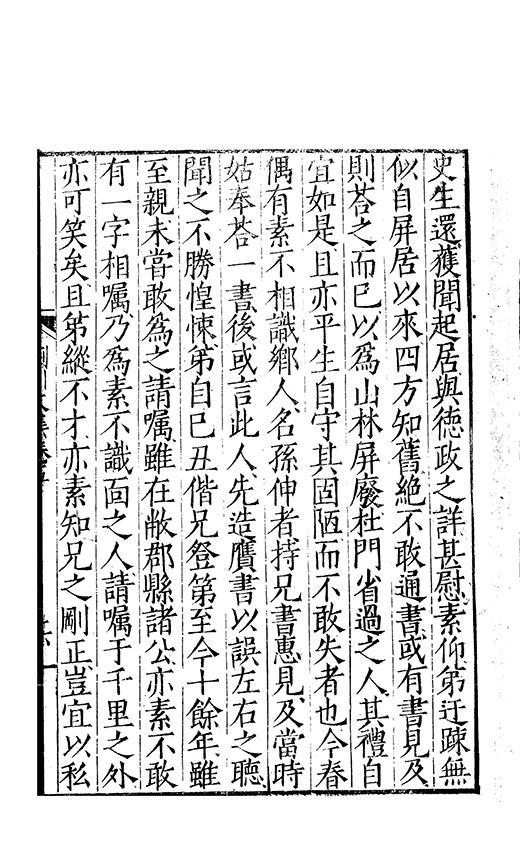 史生還獲聞起居與德政之詳甚慰素仰弟迂疎無
似自屏居以來四方知舊絶不敢通書或有書見及
則荅之而已以爲山林屏廢杜門省過之人其禮自
宜如是且亦平生自守其固陋而不敢失者也今春
偶有素不相識鄉人名孫伸者持兄書惠見及當時
姑奉荅一書後或言此人先造贋書以誤左右之聽
聞之不勝惶悚弟自己丑偕兄登第至今十餘年雖
至親未嘗敢爲之請囑雖在敝郡縣諸公亦素不敢
有一字相囑乃爲素不識面之人請囑于千里之外
亦可笑矣且弟縱不才亦素知兄之剛正豈宜以私